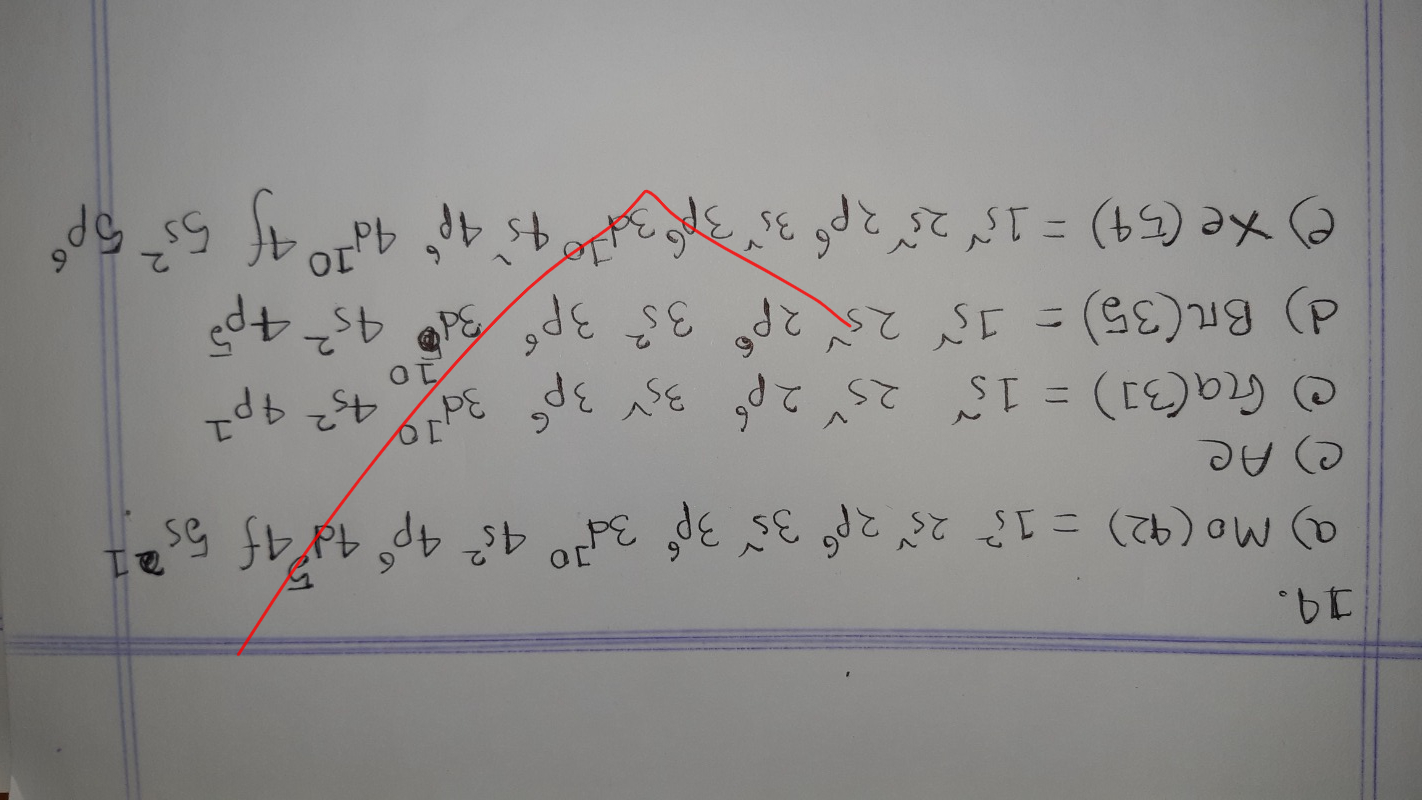 14.
a) Mo (42) = 1s² 2s² 2p⁶ 3s² 3p⁶ 3d¹⁰ 4s² 4p⁶ 4d⁵ 4f 5s¹
c) Ac
c) Ga(31) = 1s² 2s² 2p⁶ 3s² 3p⁶ 3d¹⁰ 4s² 4p¹
d) Br(35) = 1s² 2s² 2p⁶ 3s² 3p⁶ 3d¹⁰ 4s² 4p⁵
e) Xe (54) = 1s² 2s² 2p⁶ 3s² 3p⁶ 3d¹⁰ 4s² 4p⁶ 4d¹⁰ 4f 5s² 5p⁶